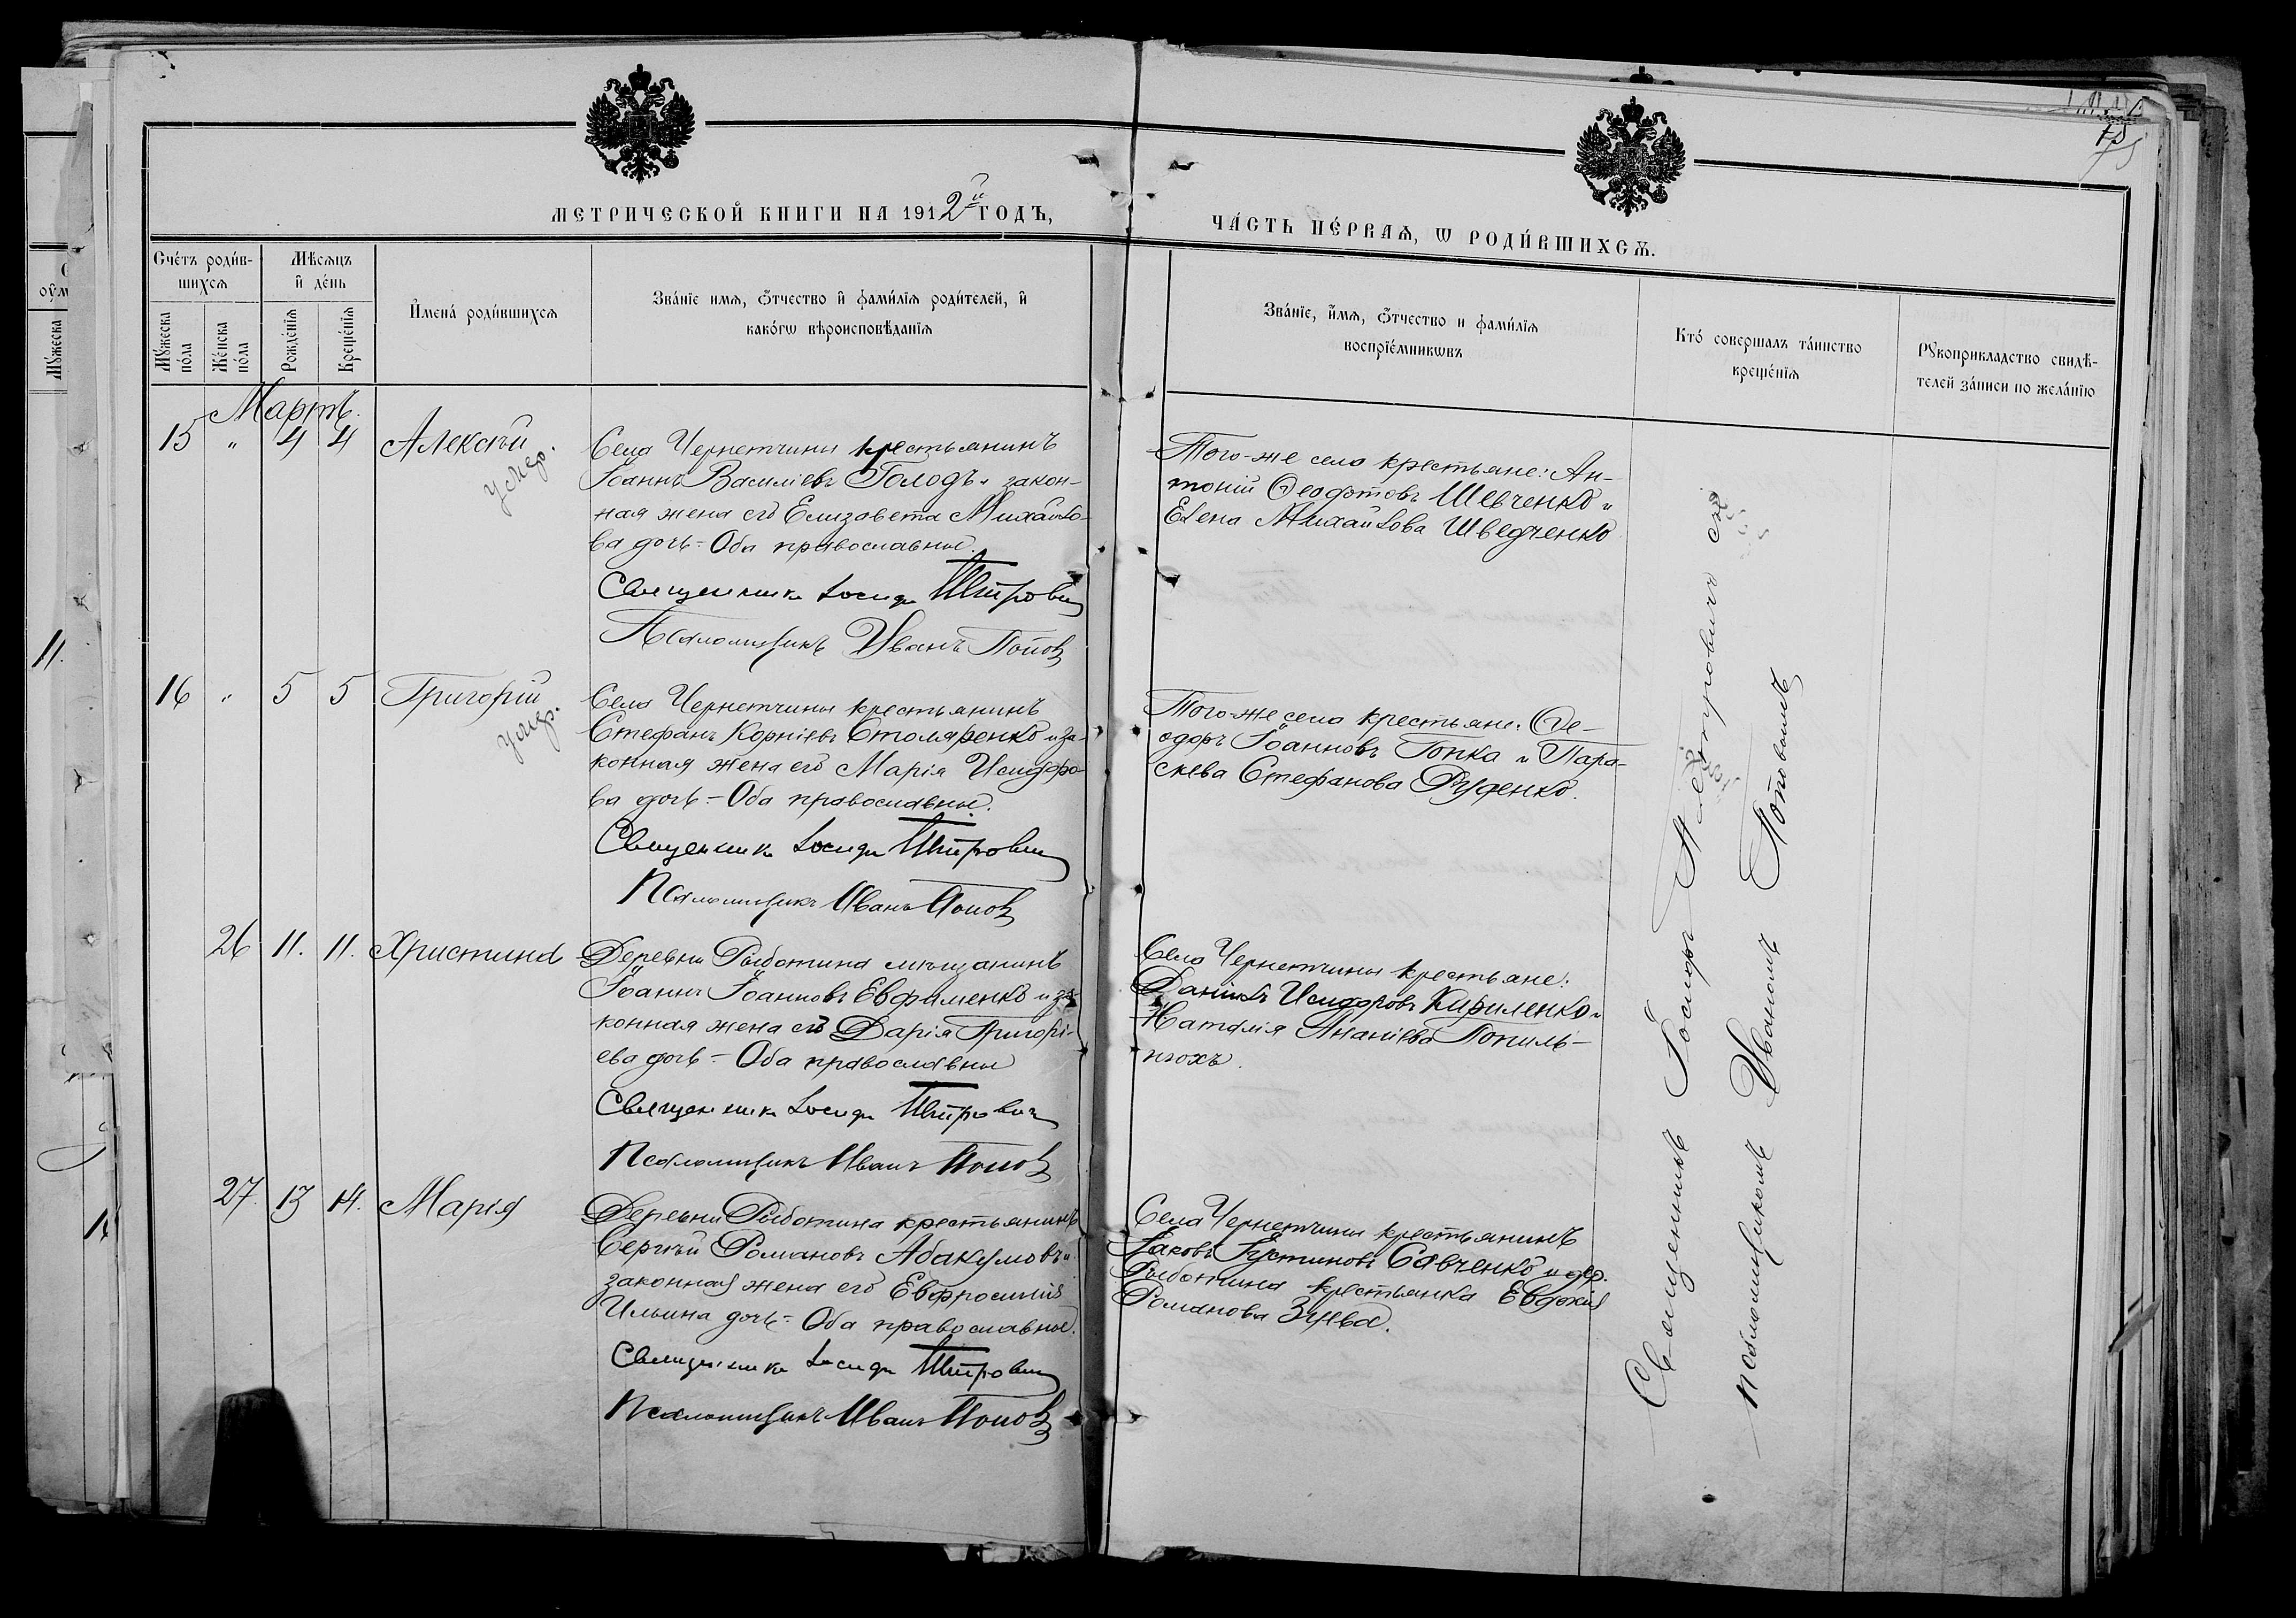 75
МЕТРИЧЕСКОЙ КНИГИ НА 1912й ГОДЪ,
ЧА́СТЬ ПЕ́РВАѦ, Ѡ РОДИ́ВШИХСѦ.
Сче́тъ роди́в-
шихсѧ
Мꙋ́жеска
по́ла
Же́нска
по́ла
Мѣ́сѧцъ
и҆ де́нь
Рожде́нїѧ
Креще́нїѧ
И҆мена́ роди́вшихсѧ
Зва́нїе имѧ, ѻ҆́тчество и҆ фами́лїѧ роди́телей, и҆
како́гѡ вѣроисповѣ́данїѧ
Зва́нїе, и҆́мѧ, ѻ҆́тчество и фами́лїѧ
воспрїе́мникѡвъ
Кто́ соверша́лъ та́инство
креще́нїѧ
Рꙋкоприкладство свидѣ́-
телей за́писи по жела́нїю
Мартъ.
15 " 4 4 Алексѣй
умер.
Села Чернетчины крестьянинъ
Іоаннъ Василіевъ Голодъ и закон-
ная жена его Елизавета Михайло-
ва дочь - Оба православные.
Священникъ Іосифъ Петровичъ
Псаломщикъ Иванъ Поповъ
Того-же села крестьяне: Ан-
тоній Ѳеодотовъ Шевченко и
Елена Михайлова Шведченко
16 " 5 5 Григорій
умер.
Села Чернетчины крестьянинъ
Стефанъ Корніевъ Столяренко и за-
конная жена его Марія Исидоро-
ва дочь - Оба православные.
Священникъ Іосифъ Петровичъ
Псаломщикъ Иванъ Поповъ
Того-же села крестьяне: Ѳе-
одоръ Іоанновъ Гопка и Пара-
скева Стефанова Руденко.
26 11. 11. Христина
Деревни Рыботина мѣщанинъ
Іоаннъ Іоанновъ Евфименко и за-
конная жена его Дарія Григорі-
ева дочь - Оба православны
Священникъ Іосифъ Петровичъ
Псаломщикъ Иванъ Поповъ
Села Чернетчины крестьяне:
Даніилъ Исидоровъ Кириленко и
Наталія Ананіева Попиль-
нюхъ.
27. 13 14. Марія
Деревни Рыботина крестьянинъ
Сергѣй Романовъ Абакумовъ и
законная жена его Евфросинія
Ильина дочь - Оба православные.
Священникъ Іосифъ Петровичъ
Псаломщикъ Иванъ Поповъ
Села Чернетчины крестьянинъ
Іаковъ Іустиновъ Савченко и дер.
Рыботина крестьянка Евдокія
Романова Зуева.
Священникъ Іосифъ Петровичъ съ
псаломщикомъ Иваномъ Поповымъ
Мꙋ́жеска
11.